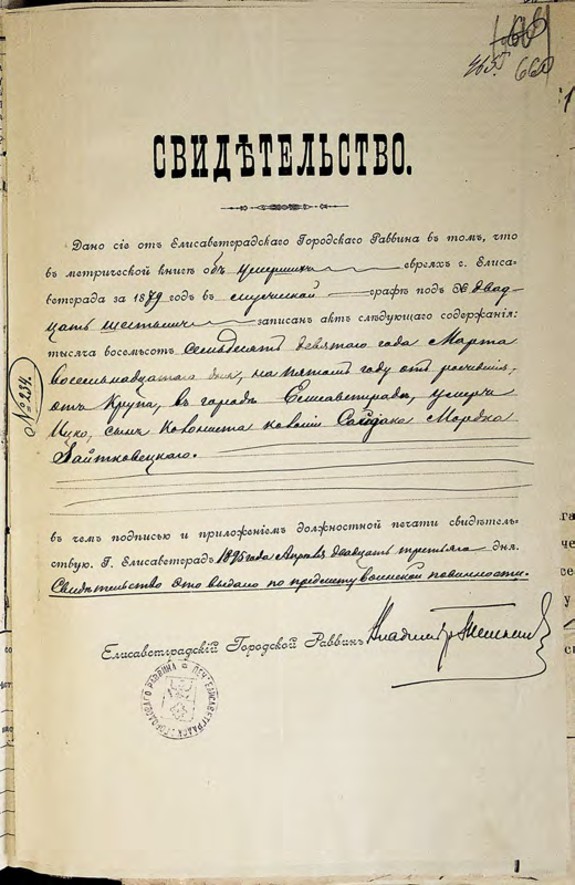 465. 660
СВИДѢТЕЛЬСТВО.
Дано сіе отъ Елисаветградскаго Городскаго Раввина въ томъ, что
въ метрической книгѣ объ умершихъ евреяхъ г. Елиса-
ветграда за 1879 годъ въ мужской графѣ подъ № двад-
цать шестымъ записанъ актъ слѣдующаго содержанія:
тысяча восемьсотъ семьдесятъ девятаго года Марта
восемьнадцатаго дня, на пятомъ году отъ рожденія,
отъ Крупа, въ городѣ Елисаветградѣ, умеръ
Ицко, сынъ колониста колоніи Сагайдака Мордка
Пайтковецкаго.
№ 234.
въ чемъ подписью и приложеніемъ должностной печати свидѣтель-
ствую. Г. Елисаветградъ 1895 года Апрѣля двадцать третьяго дня.
Свидѣтельство это выдано по предмету воинской повинности.
Елисаветградскій Городской Раввинъ Владимір